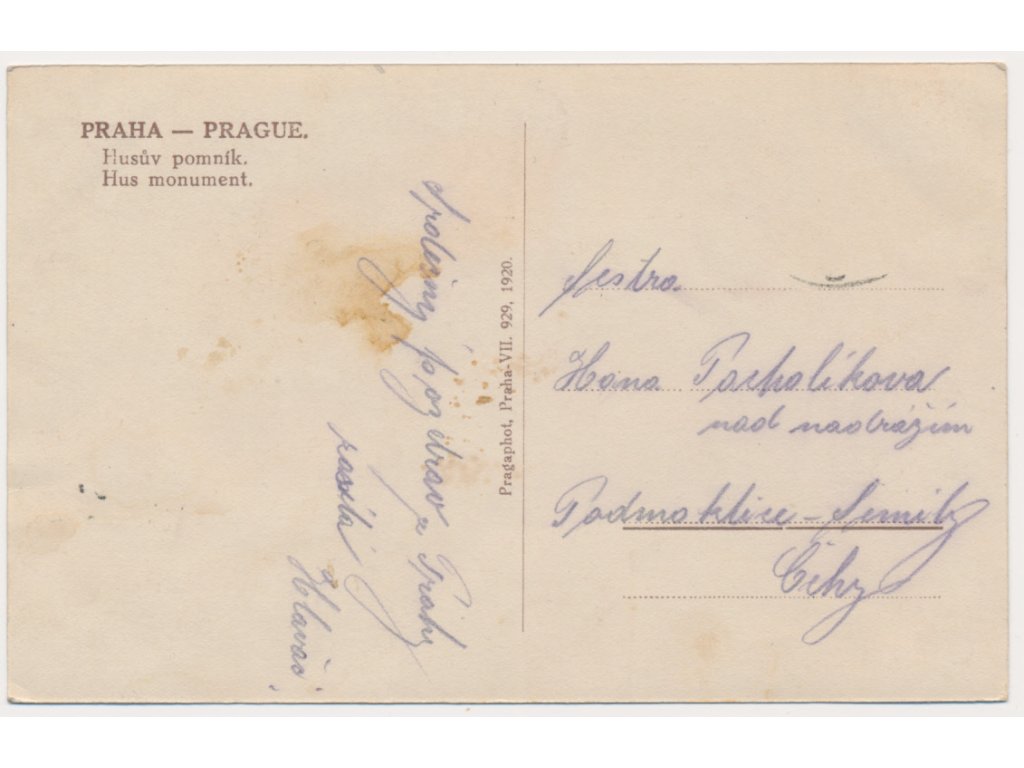 PRAHA — PRAGUE.
Husův pomník.
Hus monument.
pozdrav z Prahy
zasílá
Hlaváč
Pragaphot, Praha-VII. 929, 1920.
Sestra
Hana Pocholíkova
nad nadrážím
Podmoklice – Semily
Čihy